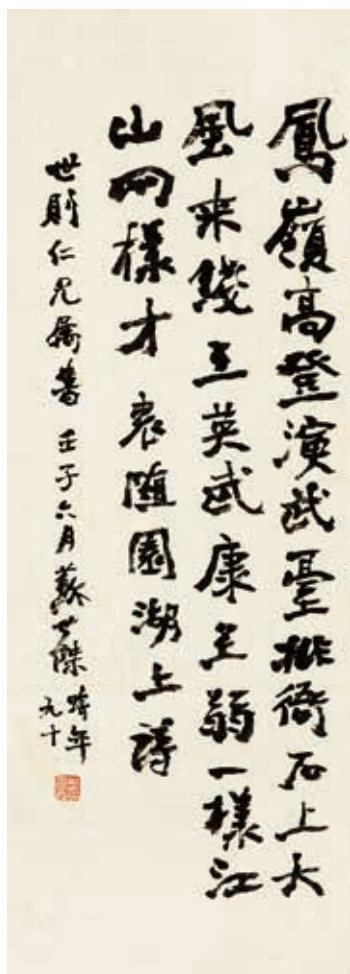 鳳嶺高登演武臺排衙石上大
風來錢王英武康王弱一樣江
山兩樣才 袁隨園湖上詩
世則仁兄屬書 壬子六月蘇世傑 時年
九十